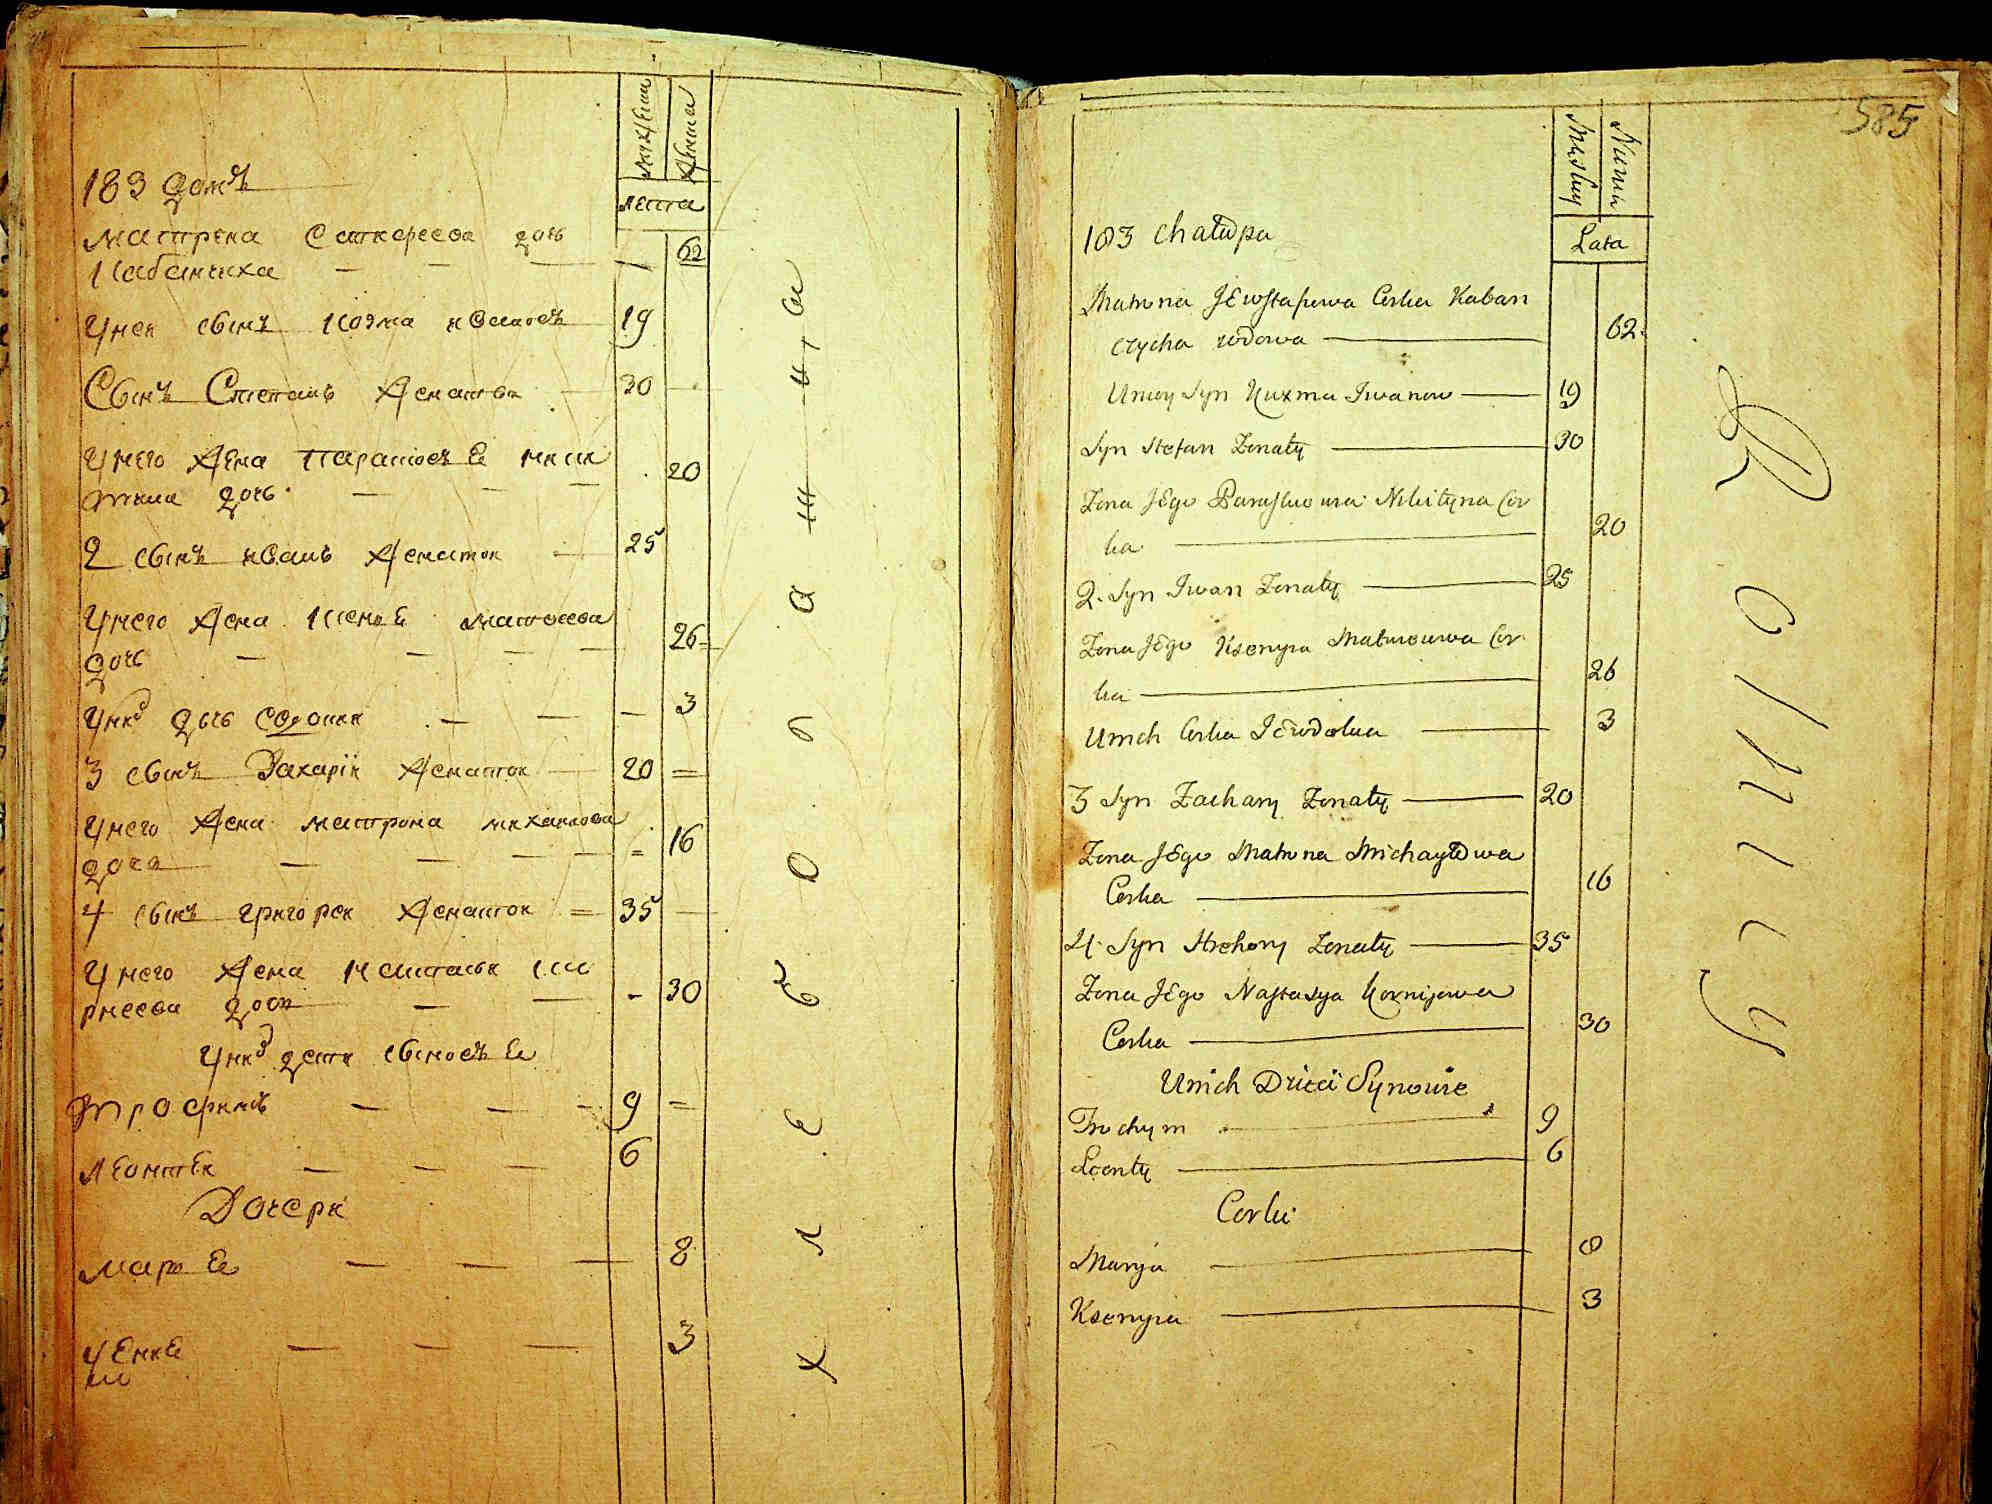 мужеска
женска
лета
183 домъ
Матрена дочь
Кабанчиха 62
унеи сынъ Козма Ивановъ 19
Сынъ Степанъ женатои 30
унего жена Парасковѣя Ники
тина дочь 20
2 сынъ Иванъ женатои 25
унего жена Ксенѣя Матвеева
дочь 26
уних дочь Ѳедосия 3
3 сынъ Захарiи женатои 20
унего жена Матрона Михаилова
дочь 16
4 сынъ Григореи женатои 35
унего жена Настасья Кор
неева дочь 30
уних дети сыновья
Трофимъ 9
Леонтеи 6
Дочери
Марья 8
3
хлебопашцы
585
Męskiey
Lata
183 Chałupa
Matrona JEwstafiewa Corka Kaban
czycha wdowa 62
Uniey Syn Kuzma Iwanow 19
Syn Stefan Zonaty 30
Zona JEgo Paraskowia Nikityna Cor
ka 20
2. Syn Iwan Zonaty 25
Zona JEgo Ksenyia Matwieiewa Cor
ka 26
Unich Corka 3
3 Syn Zachary Zonaty 20
Zona JEgo Matrona Michayłowa
Corka 16
4. Syn Hrehory Zonaty 35
Zona JEgo Nastasya Kornijowa
Corka 30
Unich Dzieci Synowie
Trochym 9
Leonty 6
Corki
Marya 8
Ksenyia 3
Rolnicy